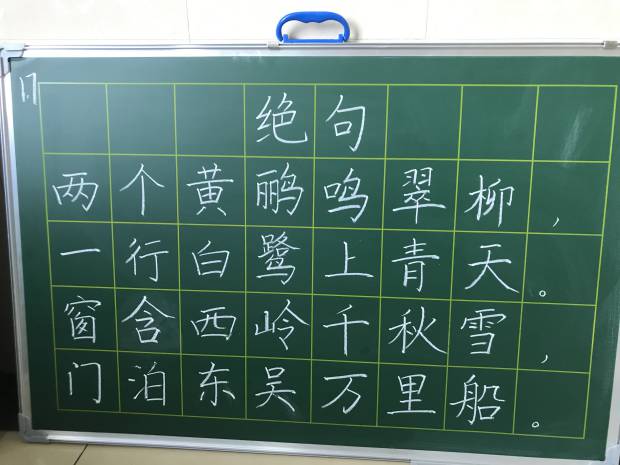 1.7
绝句
两个黄鹂鸣翠柳，
一行白鹭上青天。
窗含西岭千秋雪，
门泊东吴万里船。